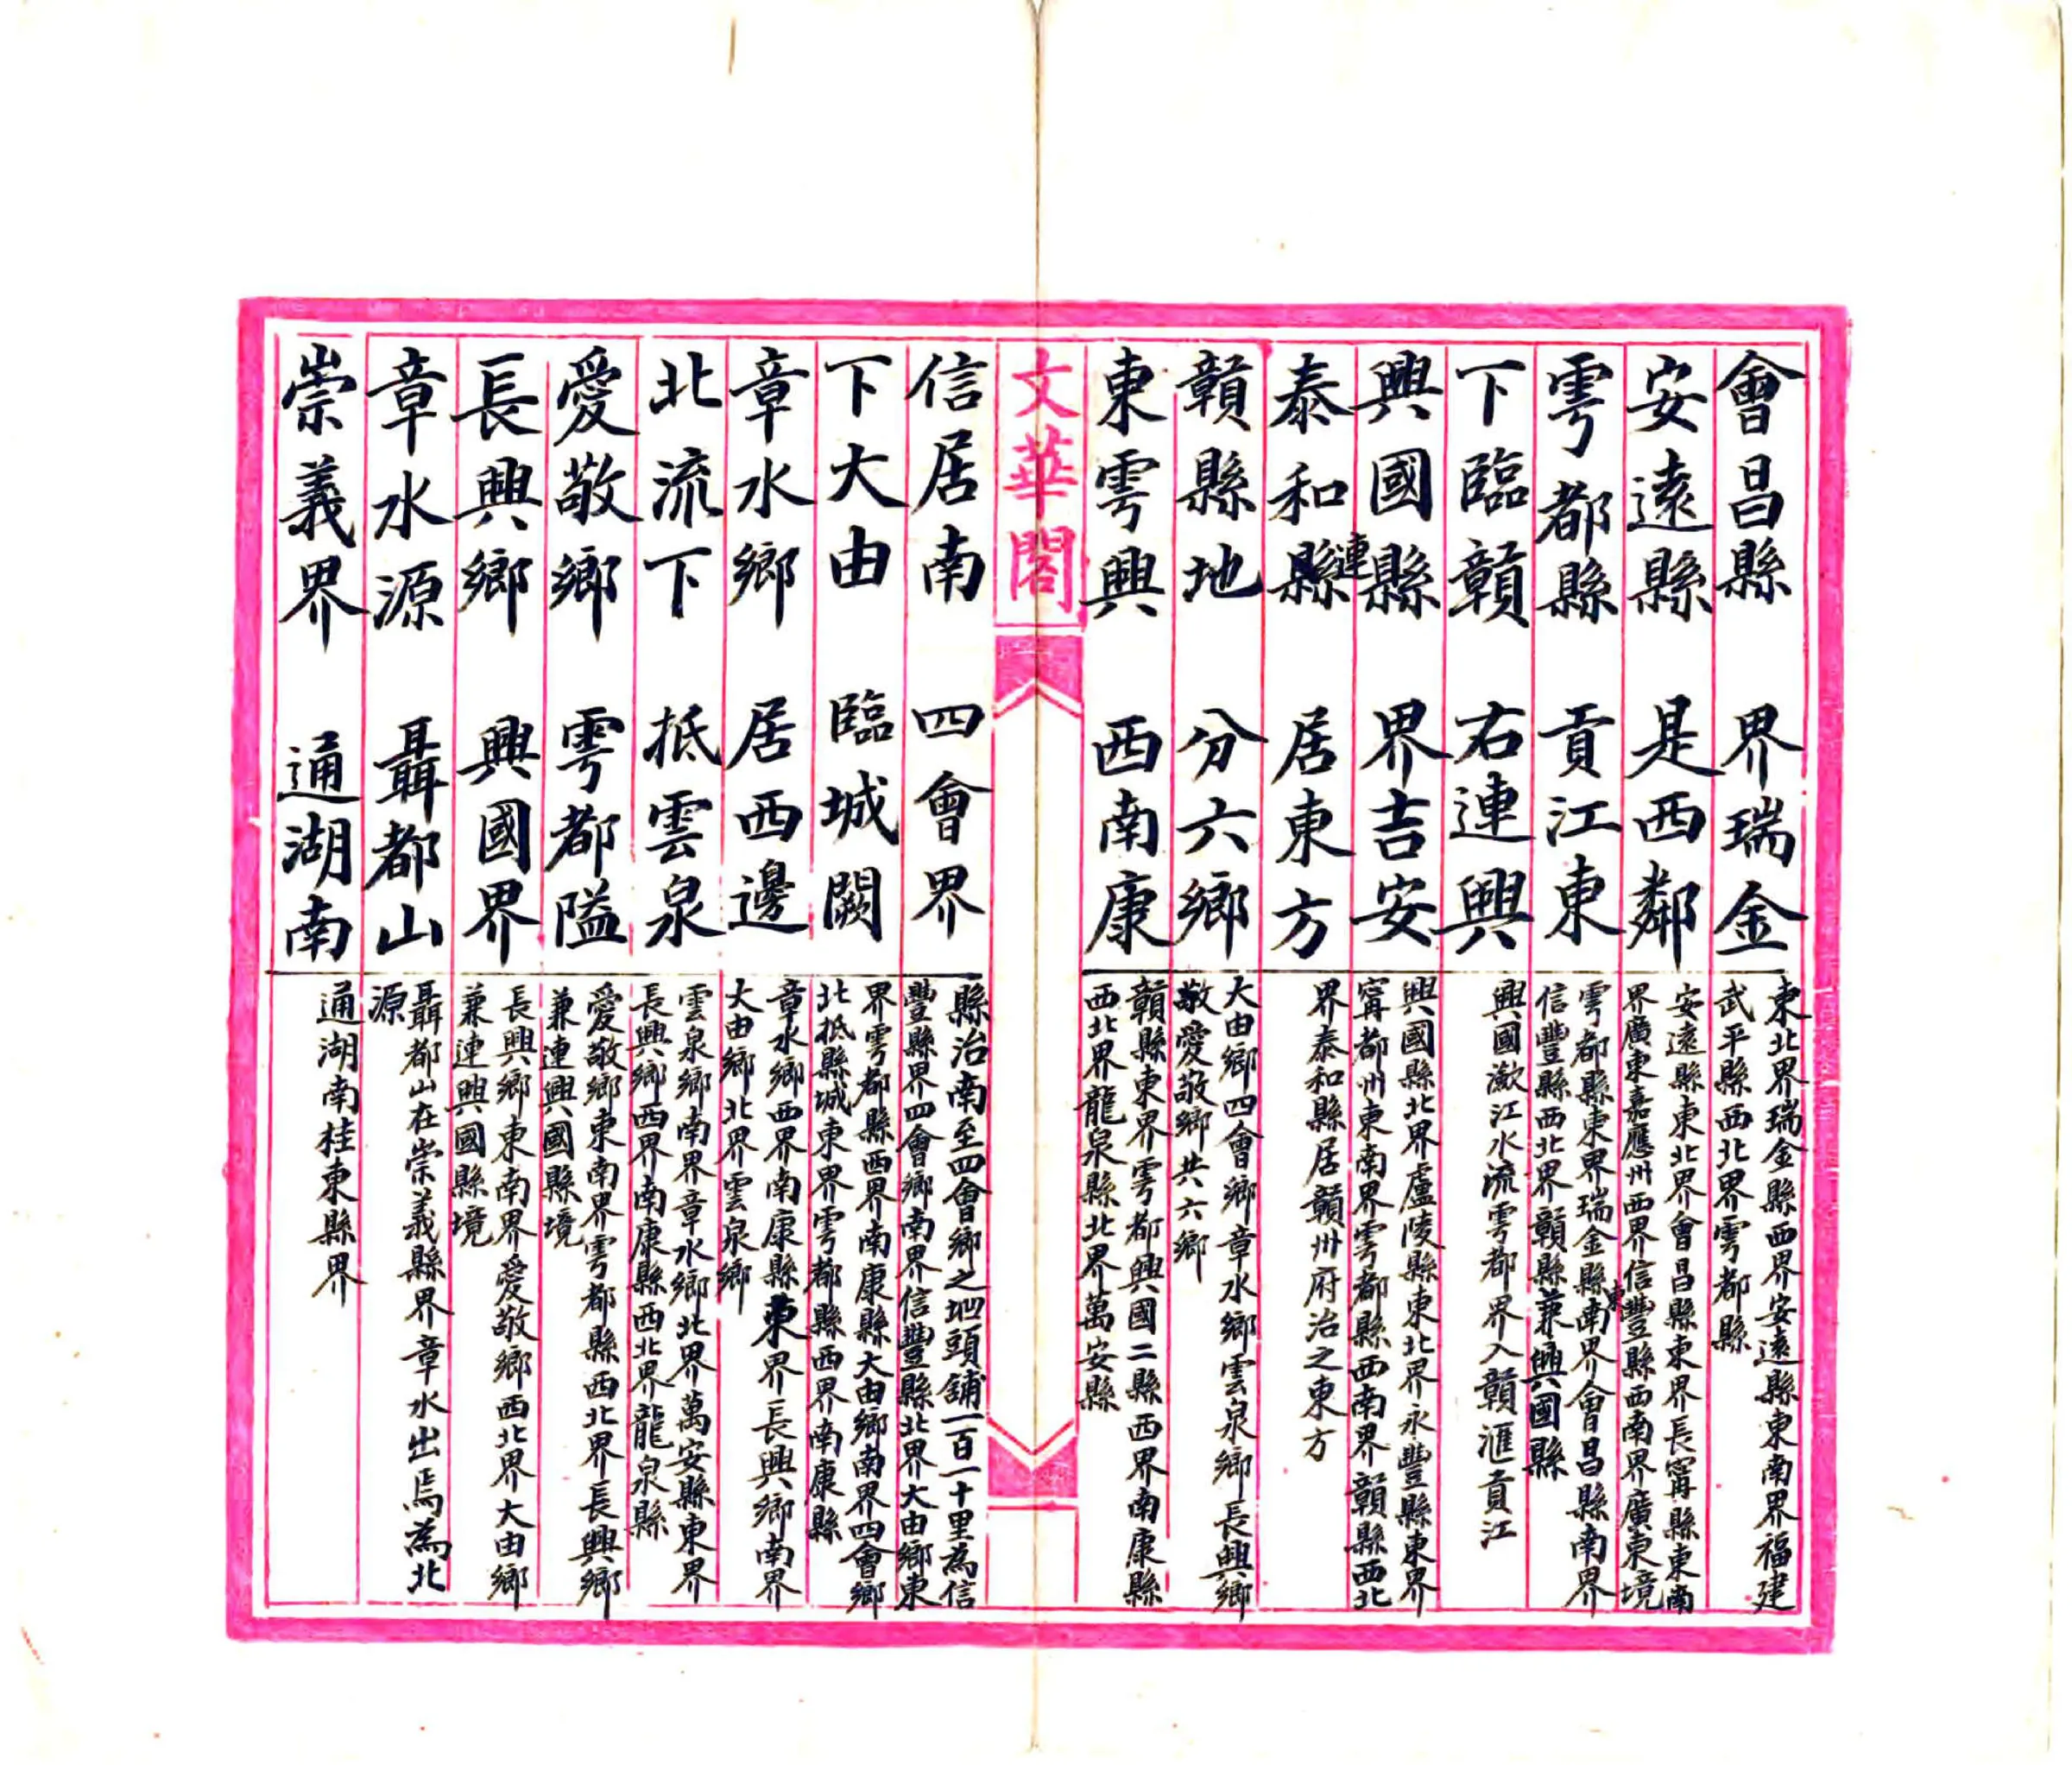 會昌縣 界瑞金
東北界瑞金縣西界安遠縣東南界福建
武平縣西北界雩都縣
安遠縣 是西鄰
安遠縣東北界會昌縣東界長甯縣東南
界廣東嘉應州西界信豐縣西南界廣東境
雩都縣 貢江東
雩都縣東界瑞金縣南界會昌縣南界
信豐縣西北界贛縣兼興國縣
東
下臨贛 右連興
興國瀲江水流雩都界入贛滙貢江
興國縣 界吉安
興國縣北界盧陵縣東北界永豐縣東界
甯都州東南界雩都縣西南界贛縣西北
連
泰和縣 居東方
界泰和縣居贛州府治之東方
贛縣地 分六鄉
大由鄉四會鄉章水鄉雲泉鄉長興鄉
敬愛敬鄉共六鄉
東雩興 西南康
贛縣東界雩都興國二縣西界南康縣
西北界龍泉縣北界萬安縣
文華閣
信居南 四會界
縣治南至四會鄉之地頭舖一百一十里為信
豐縣界四會鄉南界信豐縣北界大由鄉東
下大由 臨城闕
界雩都縣西界南康縣大由鄉南界四會鄉
北抵縣城東界雩都縣西界南康縣
章水鄉 居西邊
章水鄉西界南康縣東界長興鄉南界
大由鄉北界雲泉鄉
北流下 抵雲泉
雲泉鄉南界章水鄉北界萬安縣東界
長興鄉西界南康縣西北界龍泉縣
愛敬鄉 雩都隘
愛敬鄉東南界雩都縣西北界長興鄉
兼連興國縣境
長興鄉 興國界
長興鄉東南界愛敬鄉西北界大由鄉
兼連興國縣境
章水源 聶都山
聶都山在崇義縣界章水出焉為北
源
崇義界 通湖南
通湖南桂東縣界